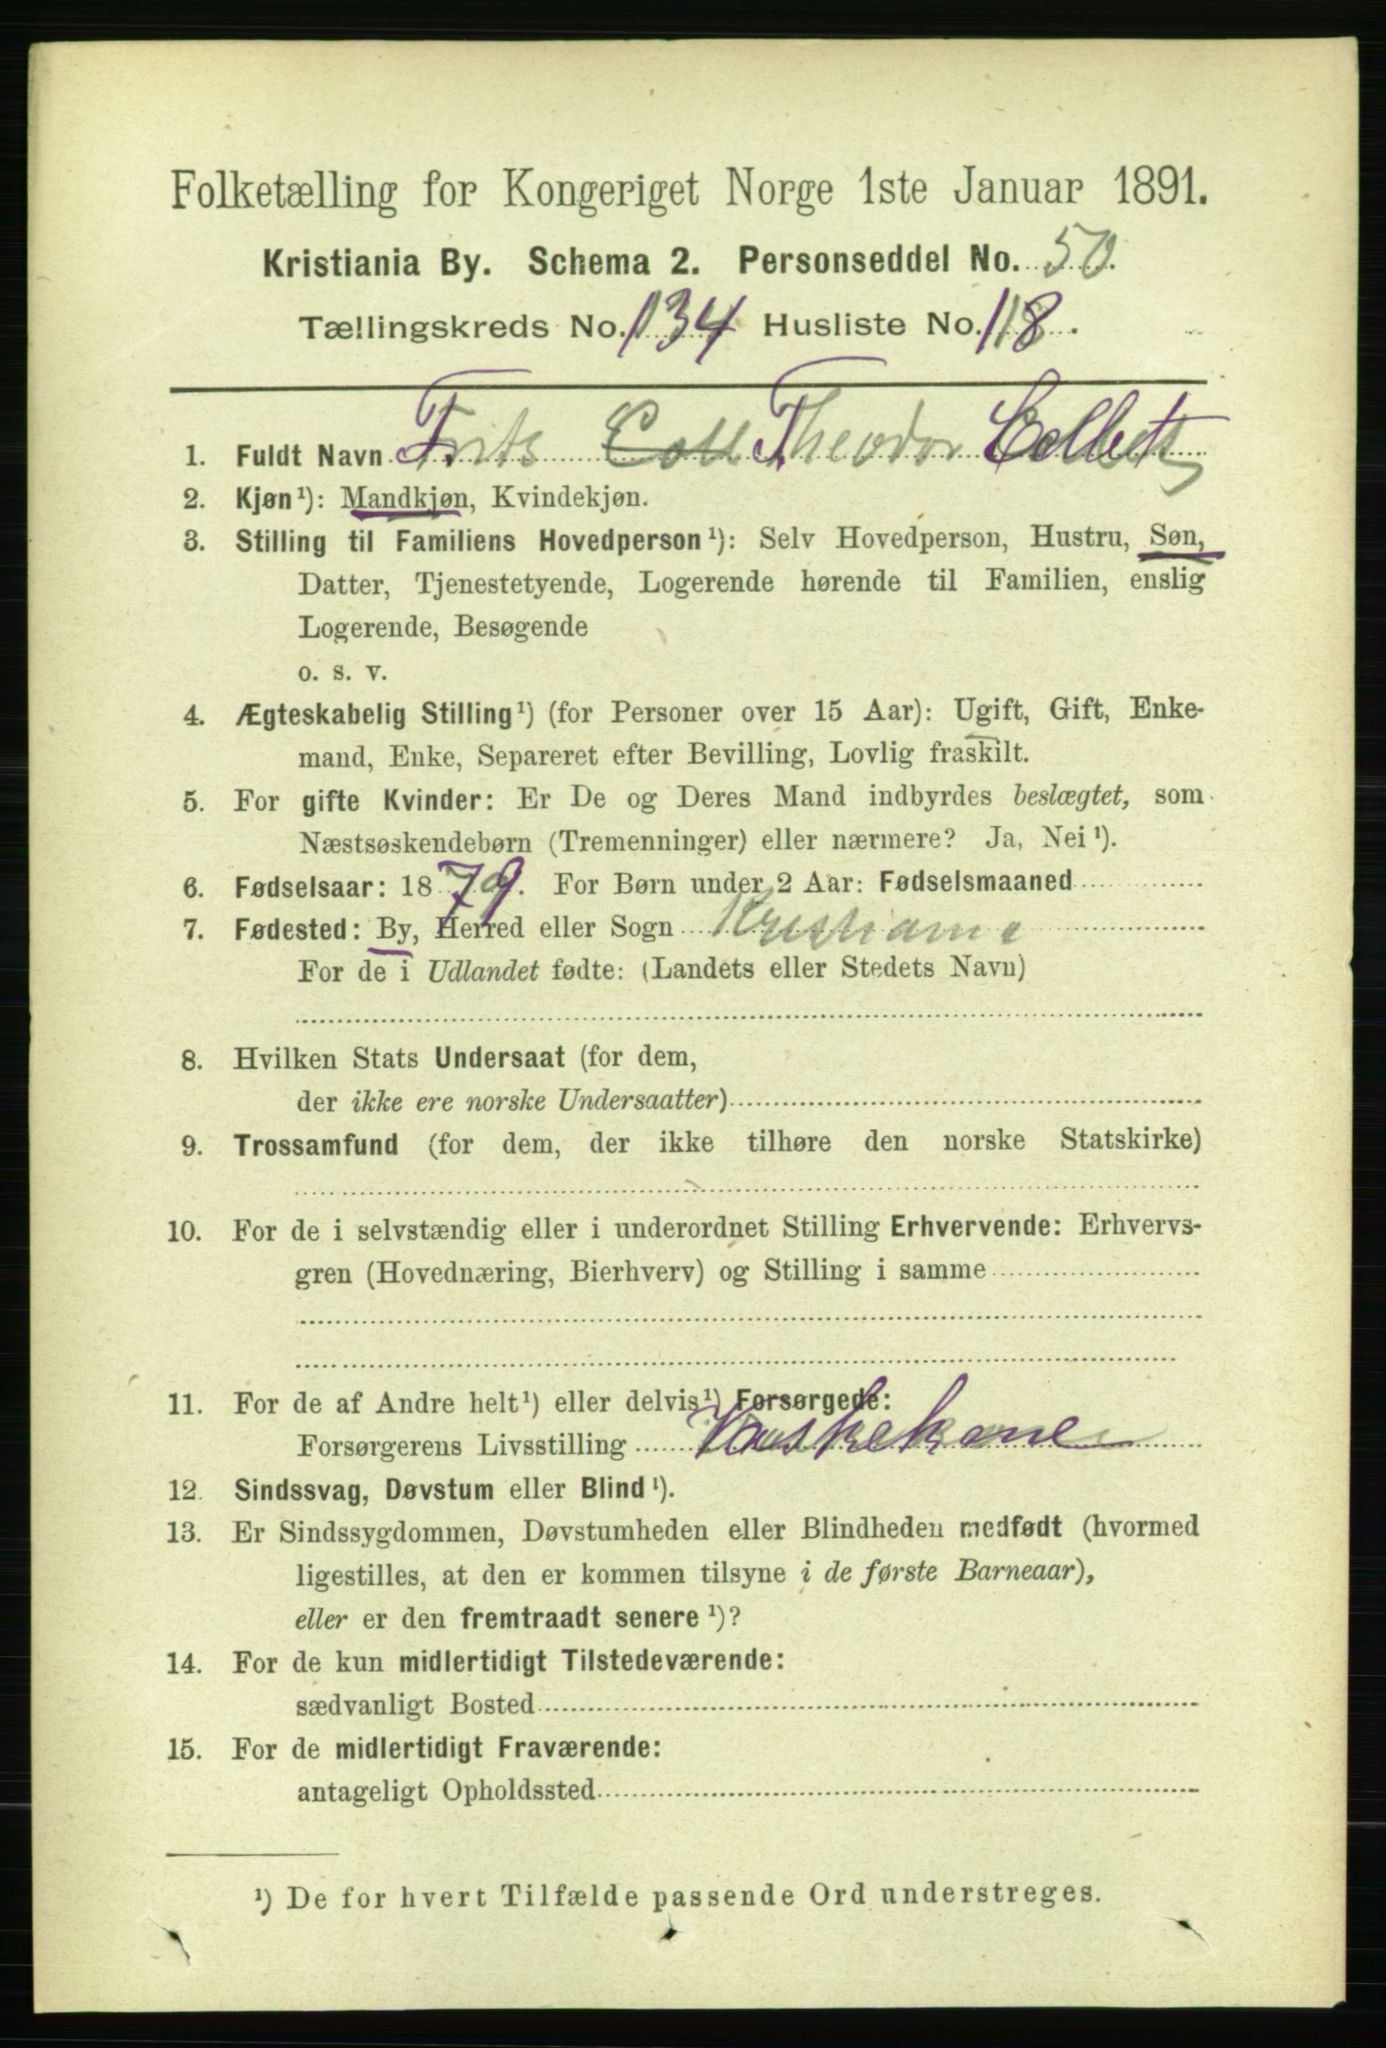 Folketælling for Kongeriget Norge 1ste Januar 1891.
Kristiania By. Schema 2. Personseddel No. 50.
Tællingskreds No. 134 Husliste No. 118.
1. Fuldt Navn Frits Coll Theodor Collett
2. Kjøn¹): Mandkjøn, Kvindekjøn.
3. Stilling til Familiens Hovedperson¹): Selv Hovedperson, Hustru, Søn,
Datter, Tjenestetyende, Logerende hørende til Familien, enslig
Logerende, Besøgende
o. s. v.
4. Ægteskabelig Stilling¹) (for Personer over 15 Aar): Ugift, Gift, Enke-
mand, Enke, Separeret efter Bevilling, Lovlig fraskilt.
5. For gifte Kvinder: Er De og Deres Mand indbyrdes beslægtet, som
Næstsøskendebørn (Tremenninger) eller nærmere? Ja, Nei¹).
6. Fødselsaar: 1879. For Børn under 2 Aar: Fødselsmaaned
7. Fødested: By, Herred eller Sogn Kristiania
For de i Udlandet fødte: (Landets eller Stedets Navn)
8. Hvilken Stats Undersaat (for dem,
der ikke ere norske Undersaatter)
9. Trossamfund (for dem, der ikke tilhøre den norske Statskirke)
10. For de i selvstændig eller i underordnet Stilling Erhvervende: Erhvervs-
gren (Hovednæring, Bierhverv) og Stilling i samme
11. For de af Andre helt¹) eller delvis¹) Forsørgede:
Forsørgerens Livsstilling Vaskekone
12. Sindssvag, Døvstum eller Blind¹).
13. Er Sindssygdommen, Døvstumheden eller Blindheden medfødt (hvormed
ligestilles, at den er kommen tilsyne i de første Barneaar),
eller er den fremtraadt senere¹)?
14. For de kun midlertidigt Tilstedeværende:
sædvanligt Bosted
15. For de midlertidigt Fraværende:
antageligt Opholdssted
¹) De for hvert Tilfælde passende Ord understreges.